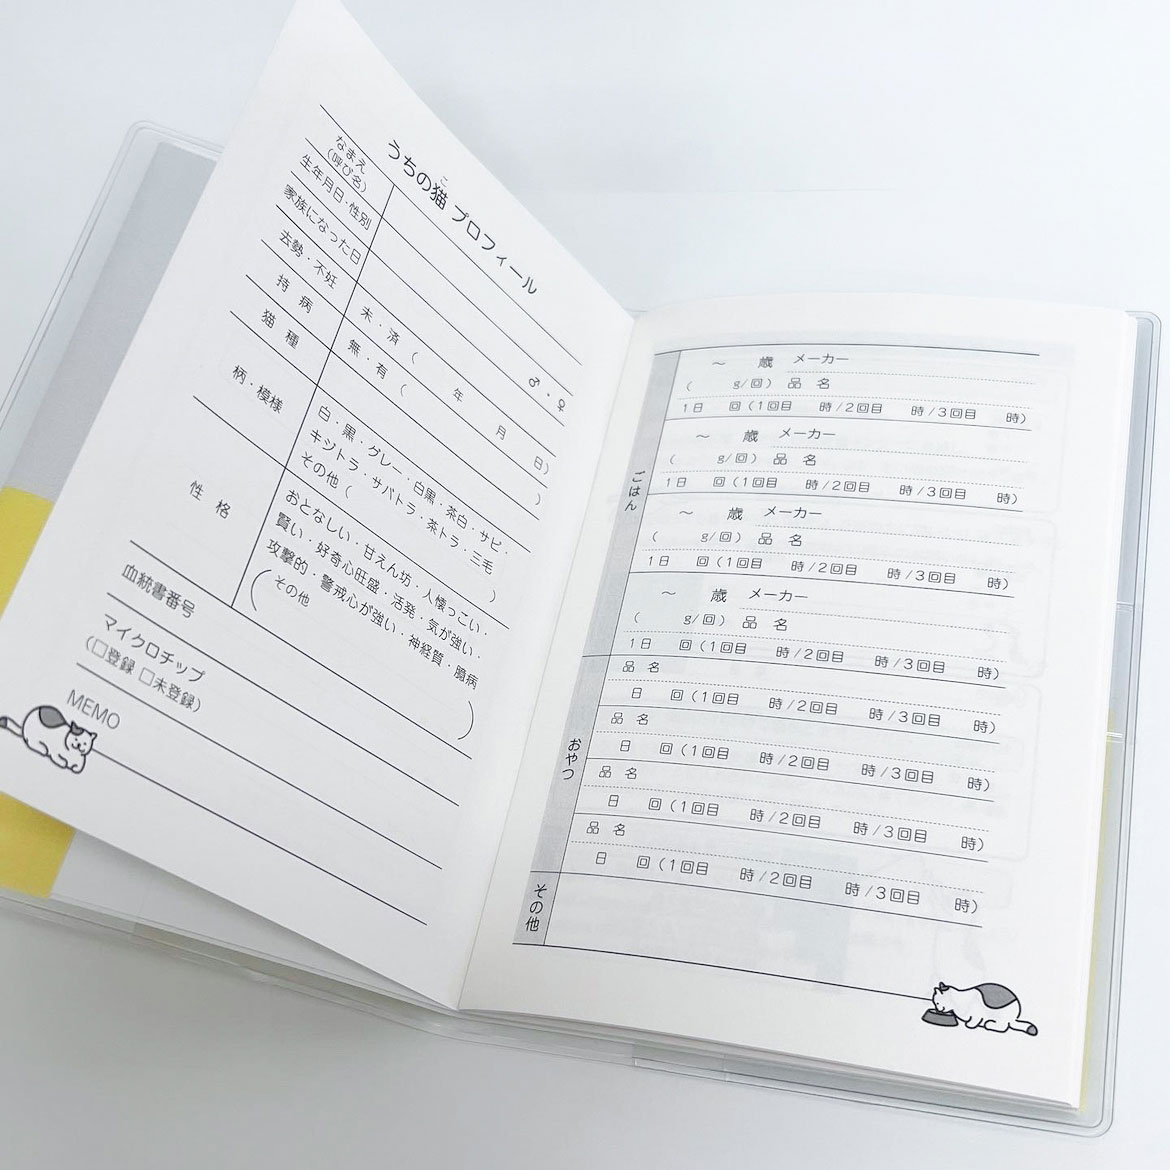 うちの猫 プロフィール
こ
なまえ
(呼び名)
生年月日・性別 ♂・♀
家族になった日
去勢・不妊 未・済 ( 年 月 日)
持病 無・有 ( )
猫種
柄・模様 白・黒・グレー・白黒・茶白・サビ・
キジトラ・サバトラ・茶トラ・三毛
その他 ( )
性格 おとなしい・甘えん坊・人懐っこい・
賢い・好奇心旺盛・活発・気が強い・
攻撃的・警戒心が強い・神経質・臆病
( その他 )
血統書番号
マイクロチップ
(□登録 □未登録)
MEMO
ごはん
～ 歳 メーカー
( g/回) 品名
1日 回 (1回目 時/2回目 時/3回目 時)
～ 歳 メーカー
( g/回) 品名
1日 回 (1回目 時/2回目 時/3回目 時)
～ 歳 メーカー
( g/回) 品名
1日 回 (1回目 時/2回目 時/3回目 時)
～ 歳 メーカー
( g/回) 品名
1日 回 (1回目 時/2回目 時/3回目 時)
おやつ
品名
日 回 (1回目 時/2回目 時/3回目 時)
品名
日 回 (1回目 時/2回目 時/3回目 時)
品名
日 回 (1回目 時/2回目 時/3回目 時)
品名
日 回 (1回目 時/2回目 時/3回目 時)
その他